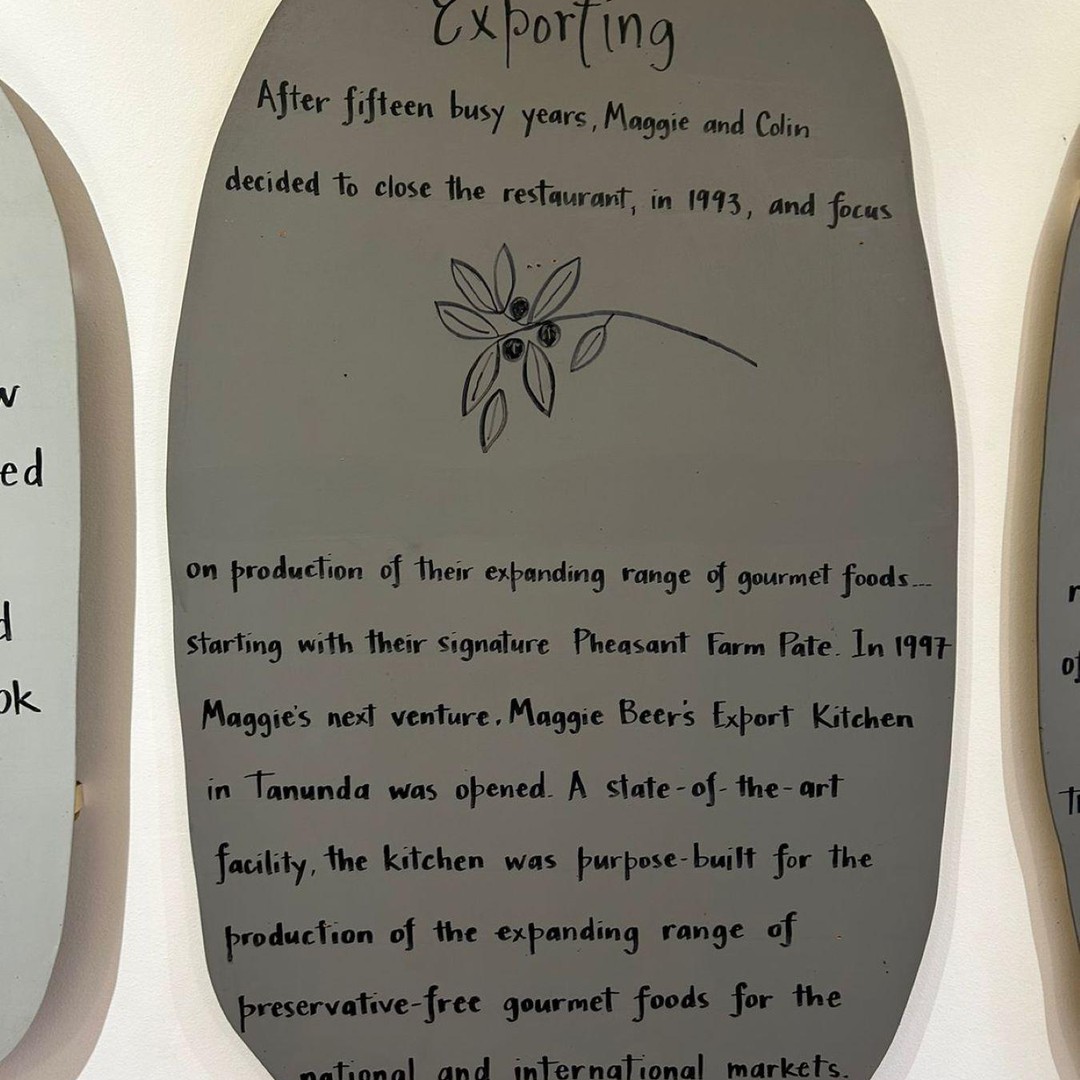 Exporting
After fifteen busy years, Maggie and Colin
decided to close the restaurant, in 1993, and focus
on production of their expanding range of gourmet foods...
starting with their signature Pheasant Farm Pate. In 1997
Maggie's next venture, Maggie Beer's Export Kitchen
in Tanunda was opened. A state-of-the-art
facility, the kitchen was purpose-built for the
production of the expanding range of
preservative-free gourmet foods for the
national and international markets.